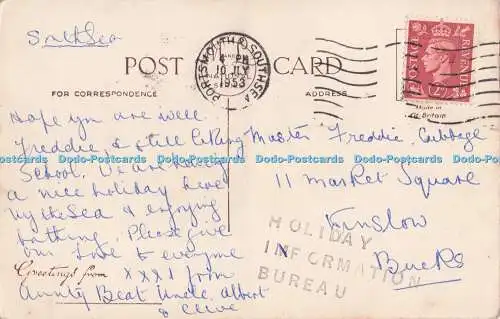 SouthSea
POST CARD
FOR CORRESPONDENCE
ADDRESS
PORTSMOUTH & SOUTHSEA
PM
10 JLY
1953
POSTAGE
REVENUE
Made in
Gt. Britain
Hope you are well
Freddie, & still liking
School. We are having
a nice holiday here
by the Sea & enjoying
bathing. Please give
our love to everyone
Greetings from
xxxx from
Aunty Beat Uncle Albert
& Clive
Master Freddie Cubbage
11 Market Square
Winslow
Bucks
HOLIDAY
INFORMATION
BUREAU
Dodo-Postcards Dodo-Postcards Dodo-Postcards Dodo-Postcards Dodo-Postcards Dodo-Postcards